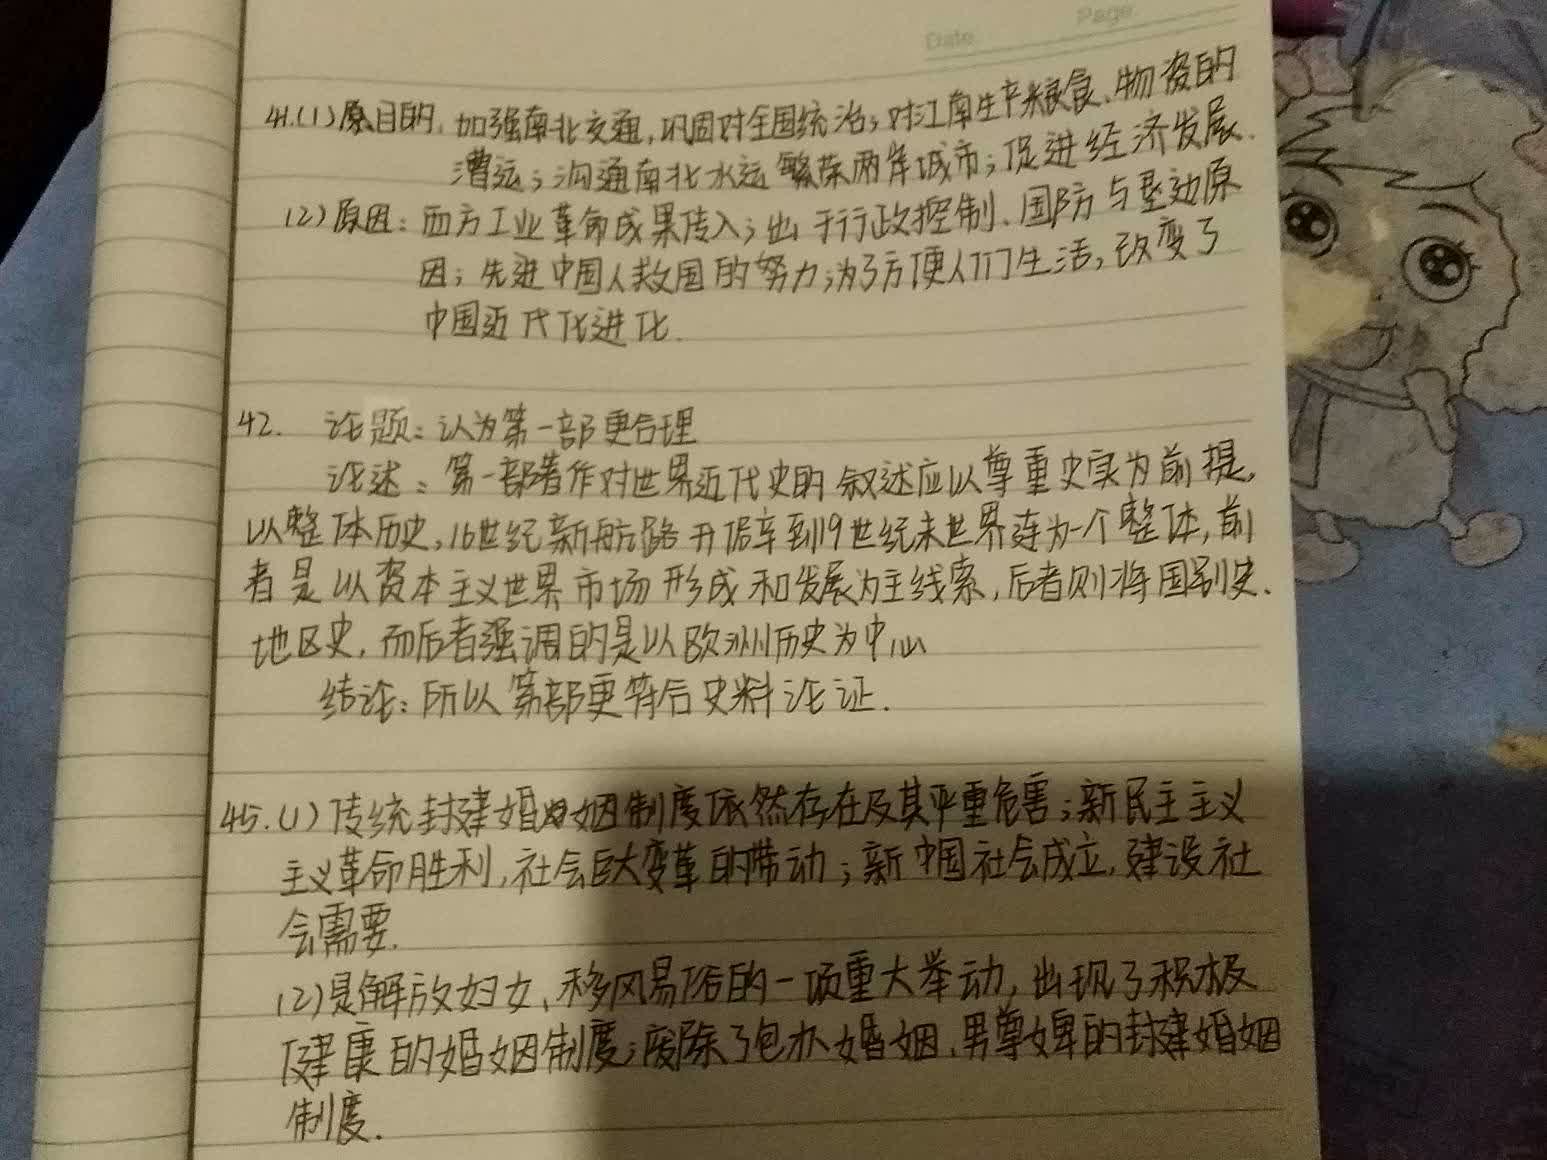 Page
Date
41.(1)原目的:加强南北交通,巩固对全国统治;对江南生产粮食、物资的
漕运;沟通南北水运 繁荣两岸城市;促进经济发展.
(2)原因:西方工业革命成果传入;出于行政控制、国防与垦边原
因;先进中国人救国的努力;为了方便人们生活,改变了
中国近代化进化.
42. 论题:认为第一部更合理
论述:第一部著作对世界近代史的叙述应以尊重史实为前提,
以整体历史,16世纪新航路开辟到19世纪末世界连为一个整体,前
者是以资本主义世界市场形成和发展为主线索,后者则将国别史.
地区史,而后者强调的是以欧洲历史为中心
结论:所以第部更符合史料论证.
45.(1)传统封建婚姻制度依然存在及其严重危害;新民主主义
主义革命胜利,社会巨大变革的带动;新中国社会成立,建设社
会需要.
(2)是解放妇女、移风易俗的一项重大举动,出现了积极
健康的婚姻制度;废除了包办婚姻,男尊婢的封建婚姻
制度.